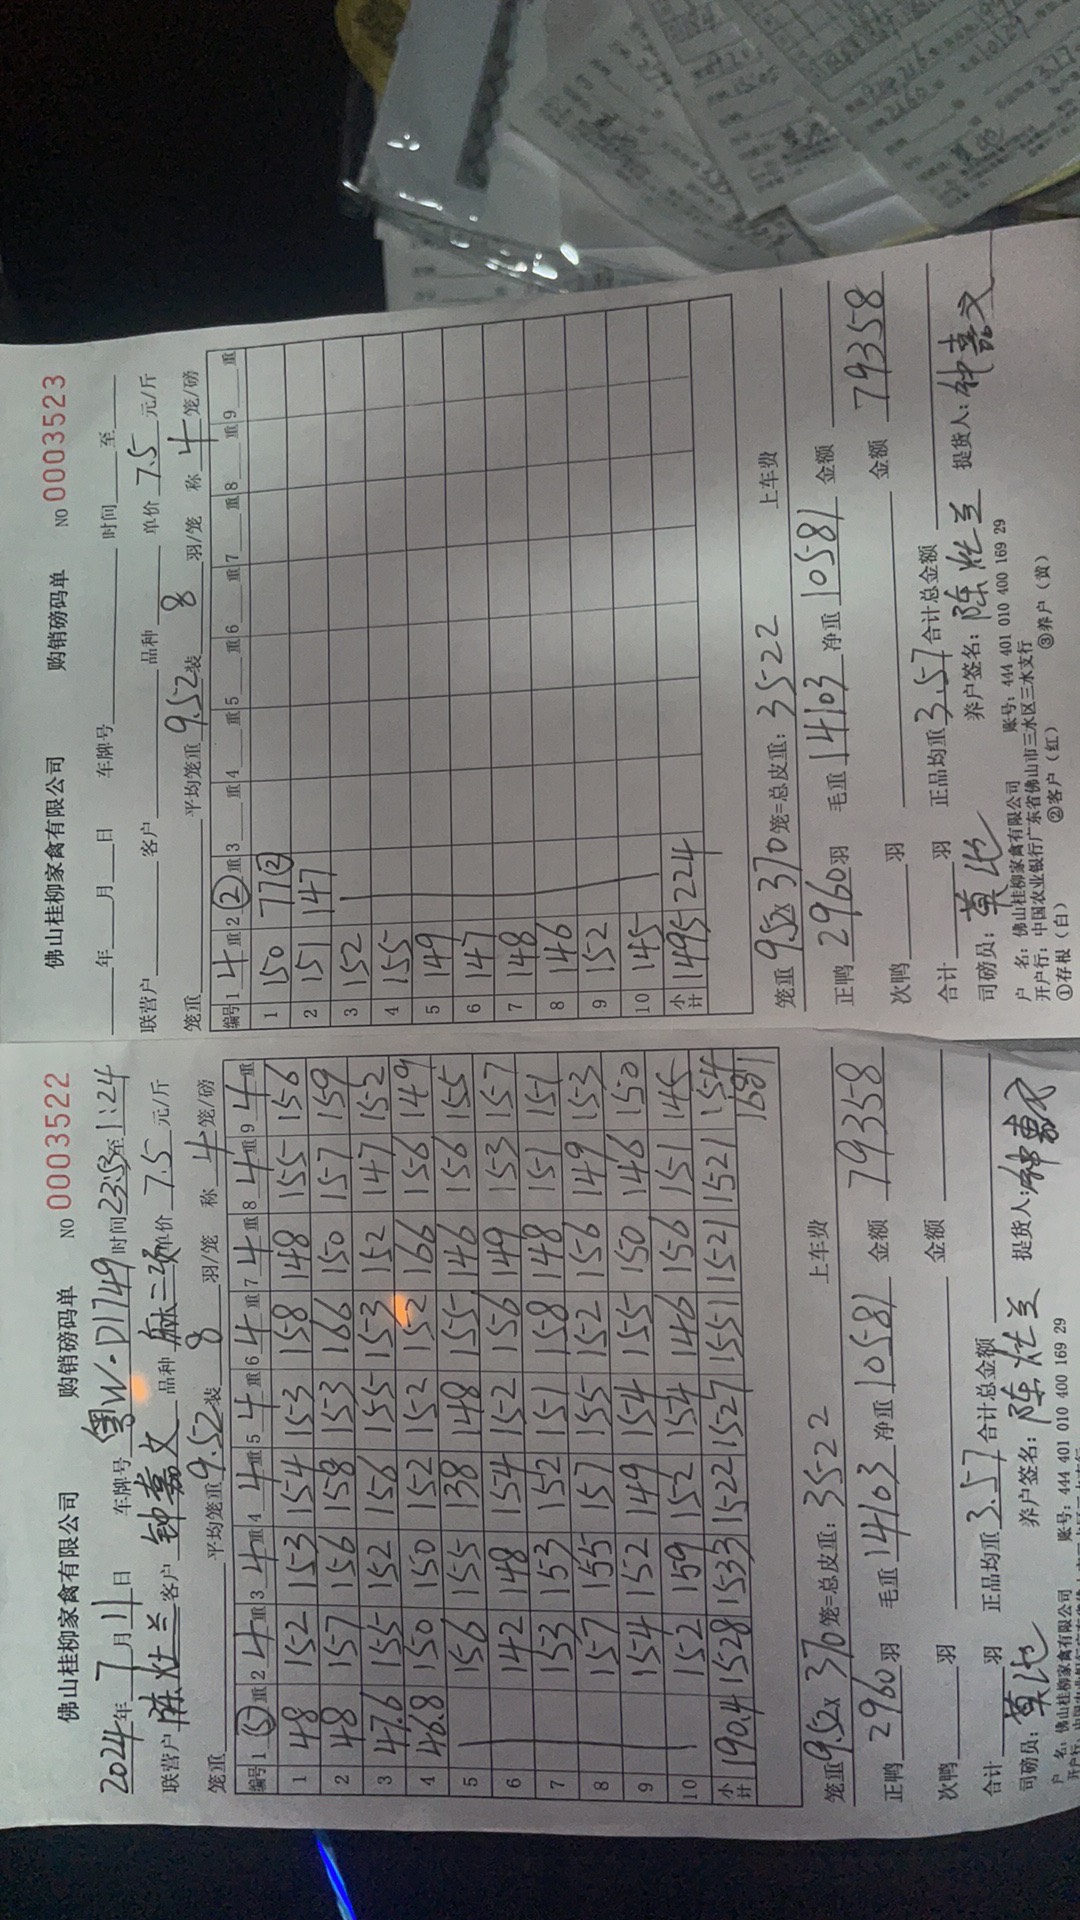 佛山桂柳家禽有限公司 购销磅码单 NO 0003522
2024年7月11日 车牌号 粤W·D1749 时间 23:53至1:24
联营户 陈灶兰 客户 钟嘉文 品种 单价 7.5 元/斤
笼重 平均笼重 9.52 装 8 羽/笼 称 4 笼/磅
编号 1 ⑤ 重 2 4 重 3 4 重 4 4 重 5 4 重 6 4 重 7 4 重 8 4 重 9 4 重
1 48 152 153 154 153 158 148 155 156
2 48 157 156 158 153 166 150 157 159
3 47.6 155 152 156 155 153 152 147 152
4 46.8 150 150 152 152 152 166 156 149
5 156 155 138 148 155 146 156 155
6 142 148 154 152 156 149 153 157
7 153 153 152 151 158 148 151 151
8 157 155 157 155 152 156 149 153
9 154 152 149 154 155 150 146 150
10 152 159 152 154 146 156 151 145
小计 190.4 1528 1533 1522 1527 1551 1521 1521 154
1681
笼重 9.52 x 370 笼=总皮重: 3522 上车费
正鸭 2960 羽 毛重 14103 净重 10581 金额 79358
次鸭 羽 金额
合计 羽 正品均重 3.57 合计总金额
司磅员: 莫池 养户签名: 陈灶兰 提货人: 钟嘉文
户 名: 佛山桂柳家禽有限公司 账号: 444 401 010 400 169 29
佛山桂柳家禽有限公司 购销磅码单 NO 0003523
年 月 日 车牌号 时间 至
联营户 客户 品种 单价 7.5 元/斤
笼重 平均笼重 9.52 装 8 羽/笼 称 4 笼/磅
编号 1 4 重 2 ② 重 3 重 4 重 5 重 6 重 7 重 8 重 9 重
1 150 77②
2 151 147
3 152
4 155
5 149
6 147
7 148
8 146
9 152
10 145
小计 1495 224
笼重 9.52 x 370 笼=总皮重: 3522 上车费
正鸭 2960 羽 毛重 14103 净重 10581 金额
次鸭 羽 金额 79358
合计 羽 正品均重 3.57 合计总金额
司磅员: 莫池 养户签名: 陈灶兰 提货人: 钟嘉文
户 名: 佛山桂柳家禽有限公司 账号: 444 401 010 400 169 29
开户行: 中国农业银行广东省佛山市三水区三水支行
①存根（白） ②客户（红） ③养户（黄）